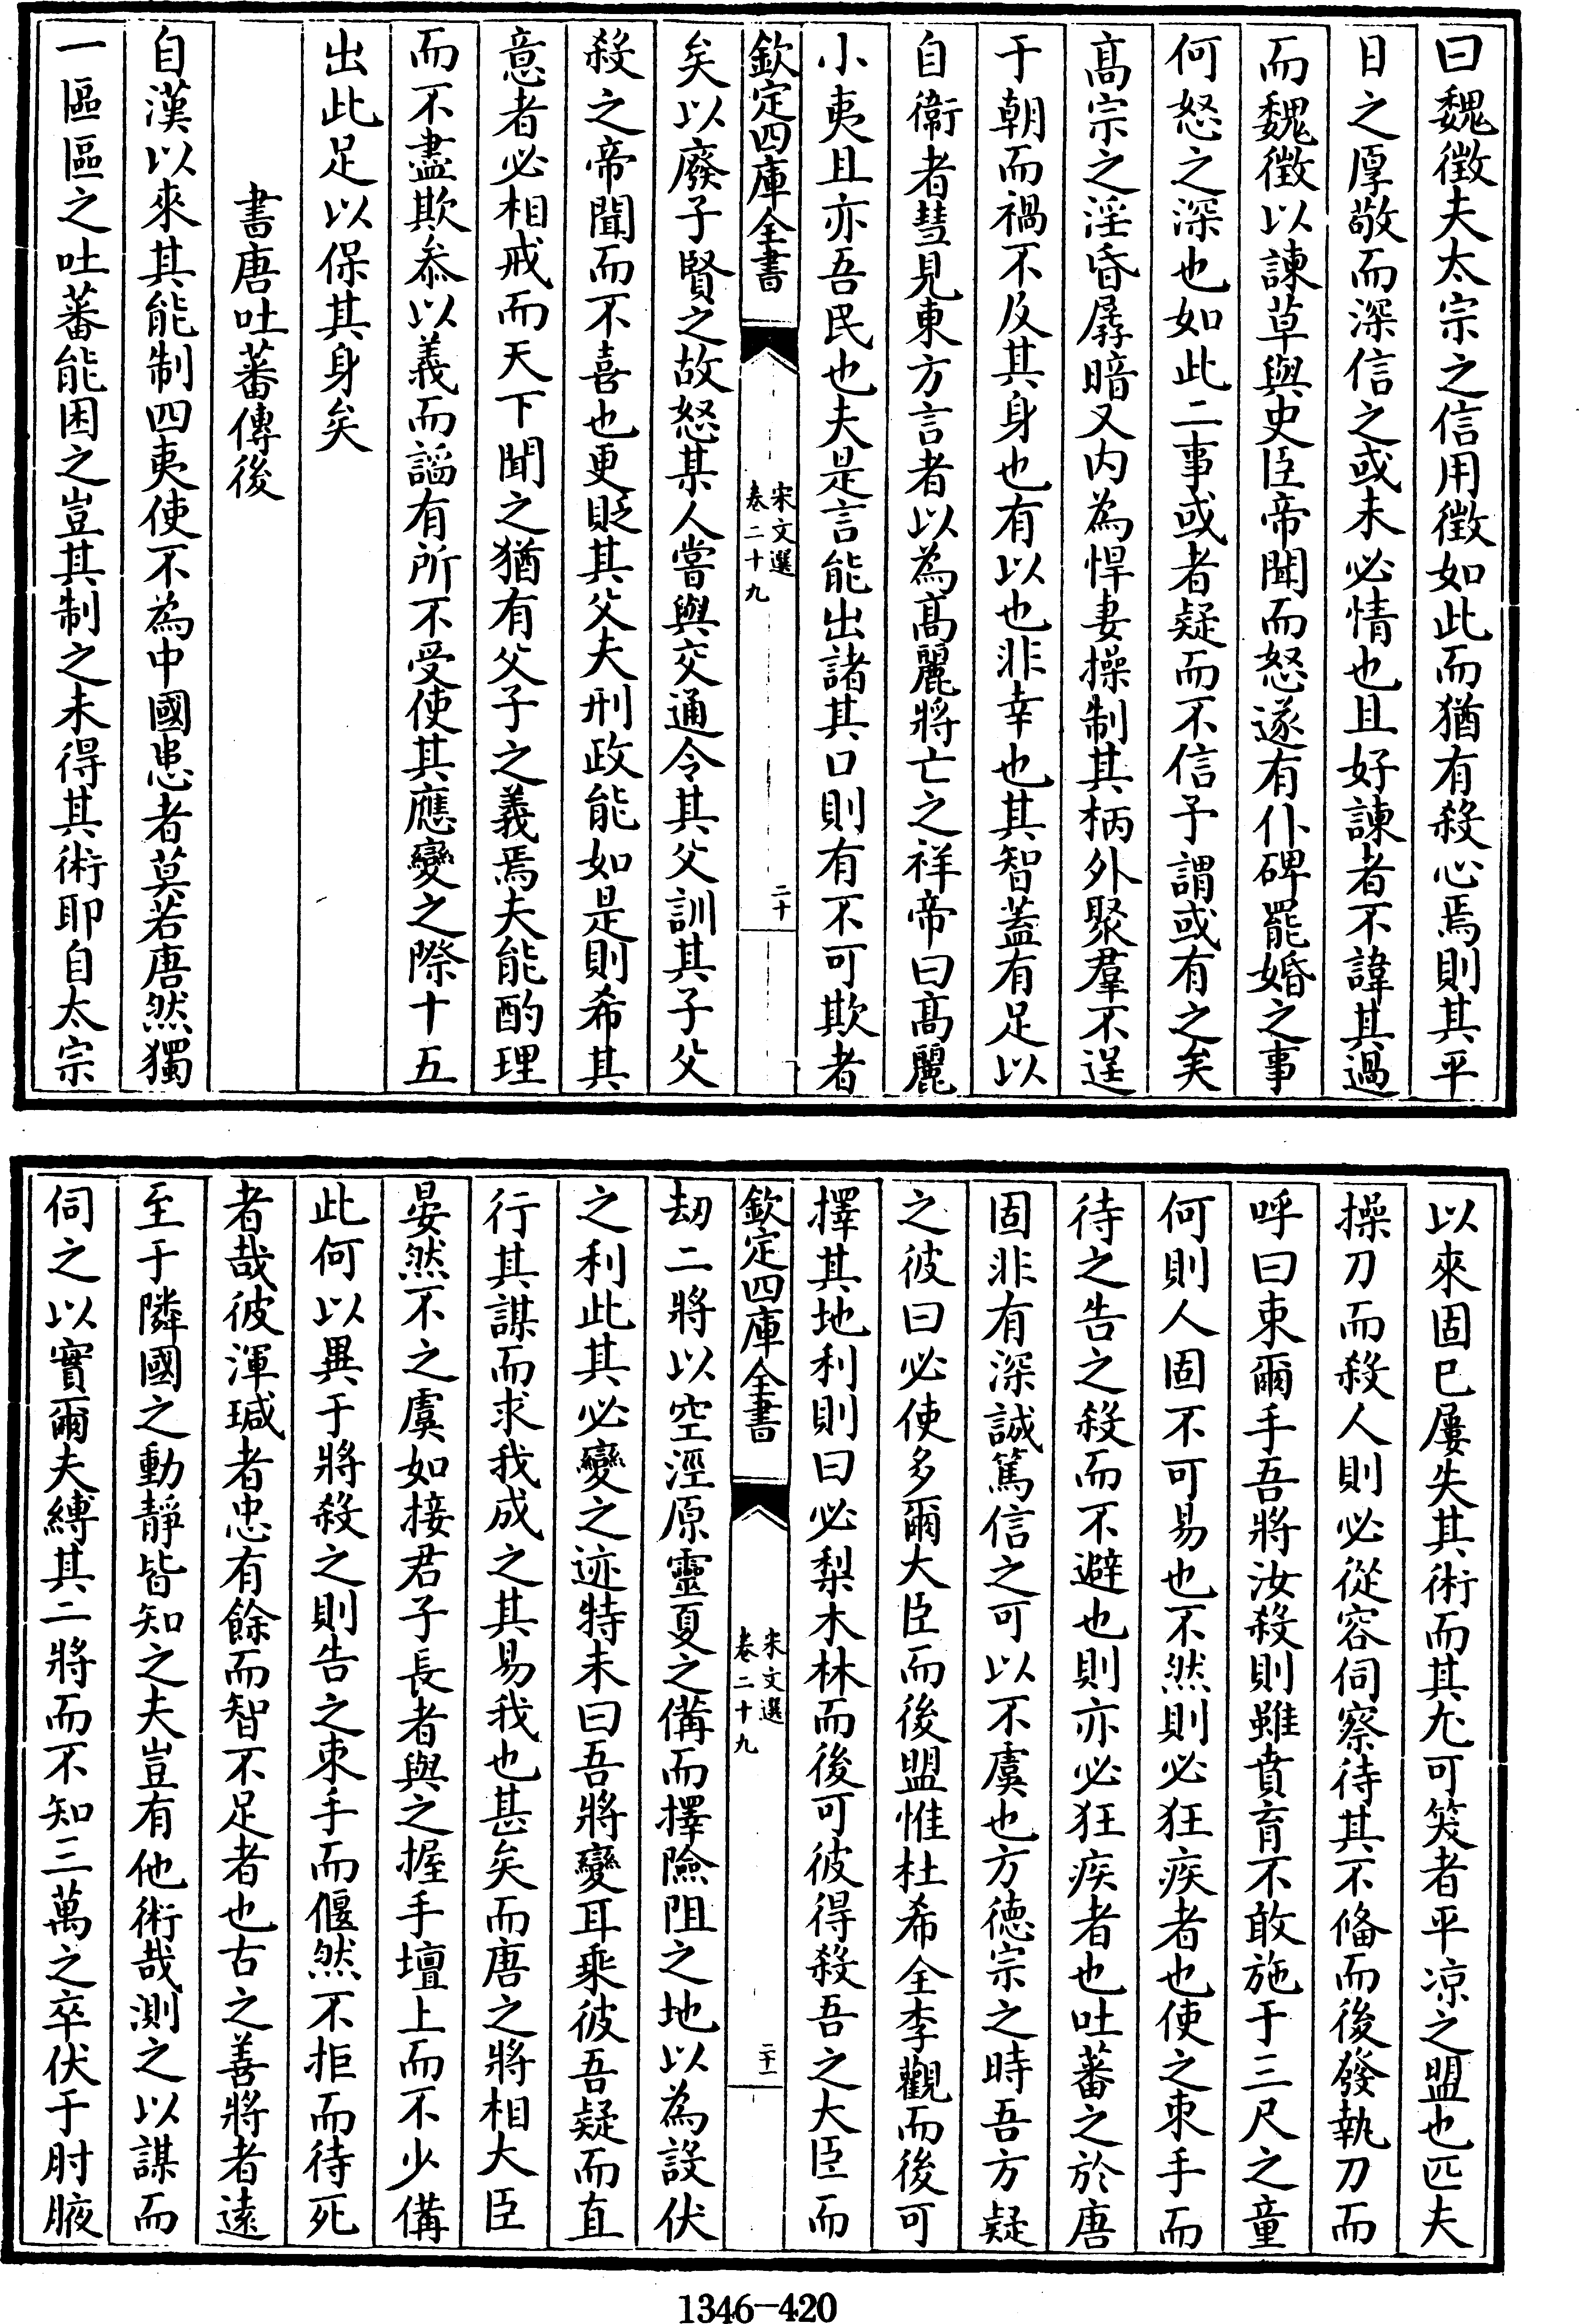 曰魏徴夫太宗之信用徴如此而猶有殺心焉則其平
日之厚敬而深信之或未必情也且好諫者不諱其過
而魏徴以諫草與史臣帝聞而怒遂有仆碑罷婚之事
何怒之深也如此二事或者疑而不信予謂或有之矣
髙宗之淫昏孱暗又内為悍妻操制其柄外聚羣不逞
于朝而禍不反其身也有以也非幸也其智蓋有足以
自衞者彗見東方言者以為髙麗將亡之祥帝曰髙麗
小夷且亦吾民也夫是言能出諸其口則有不可欺者
欽定四庫全書
宋文選
卷二十九
二十
矣以廢子賢之故怒某人嘗與交通令其父訓其子父
殺之帝聞而不喜也更貶其父夫刑政能如是則希其
意者必相戒而天下聞之猶有父子之義焉夫能酌理
而不盡欺叅以義而謟有所不受使其應變之際十五
出此足以保其身矣
書唐吐蕃傳後
自漢以來其能制四夷使不為中國患者莫若唐然獨
一區區之吐蕃能困之豈其制之未得其術耶自太宗
以來固已屢失其術而其尤可笑者平凉之盟也匹夫
操刀而殺人則必從容伺察待其不偹而後發執刀而
呼曰束爾手吾將汝殺則雖賁育不敢施于三尺之童
何則人固不可易也不然則必狂疾者也使之束手而
待之告之殺而不避也則亦必狂疾者也吐蕃之於唐
固非有深誠篤信之可以不虞也方徳宗之時吾方疑
之彼曰必使多爾大臣而後盟惟杜希全李觀而後可
擇其地利則曰必梨木林而後可彼得殺吾之大臣而
欽定四庫全書
宋文選
卷二十九
二十一
刼二將以空涇原靈夏之備而擇險阻之地以為設伏
之利此其必變之迹特未曰吾將變耳乘彼吾疑而直
行其謀而求我成之其易我也甚矣而唐之將相大臣
晏然不之虞如接君子長者與之握手壇上而不少備
此何以異于將殺之則告之束手而偃然不拒而待死
者哉彼渾瑊者忠有餘而智不足者也古之善將者逺
至于隣國之動靜皆知之夫豈有他術哉測之以謀而
伺之以實爾夫縛其二將而不知三萬之卒伏于肘腋
1346—420